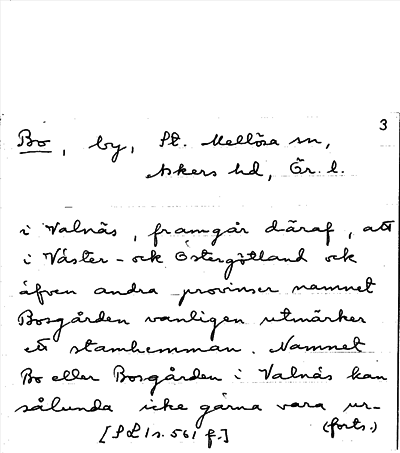 3
Bo, by, St. Mellösa sn,
Askers hd, Ör. l.
i Valnäs, framgår däraf, att
i Väster- och Östergötland och
äfven andra provinser namnet
Bosgården vanligen utmärker
ett stamhemman. Namnet
Bo eller Bosgården i Valnäs kan
sålunda icke gärna vara ur-
[SL 1 s. 561 f.] (forts.)